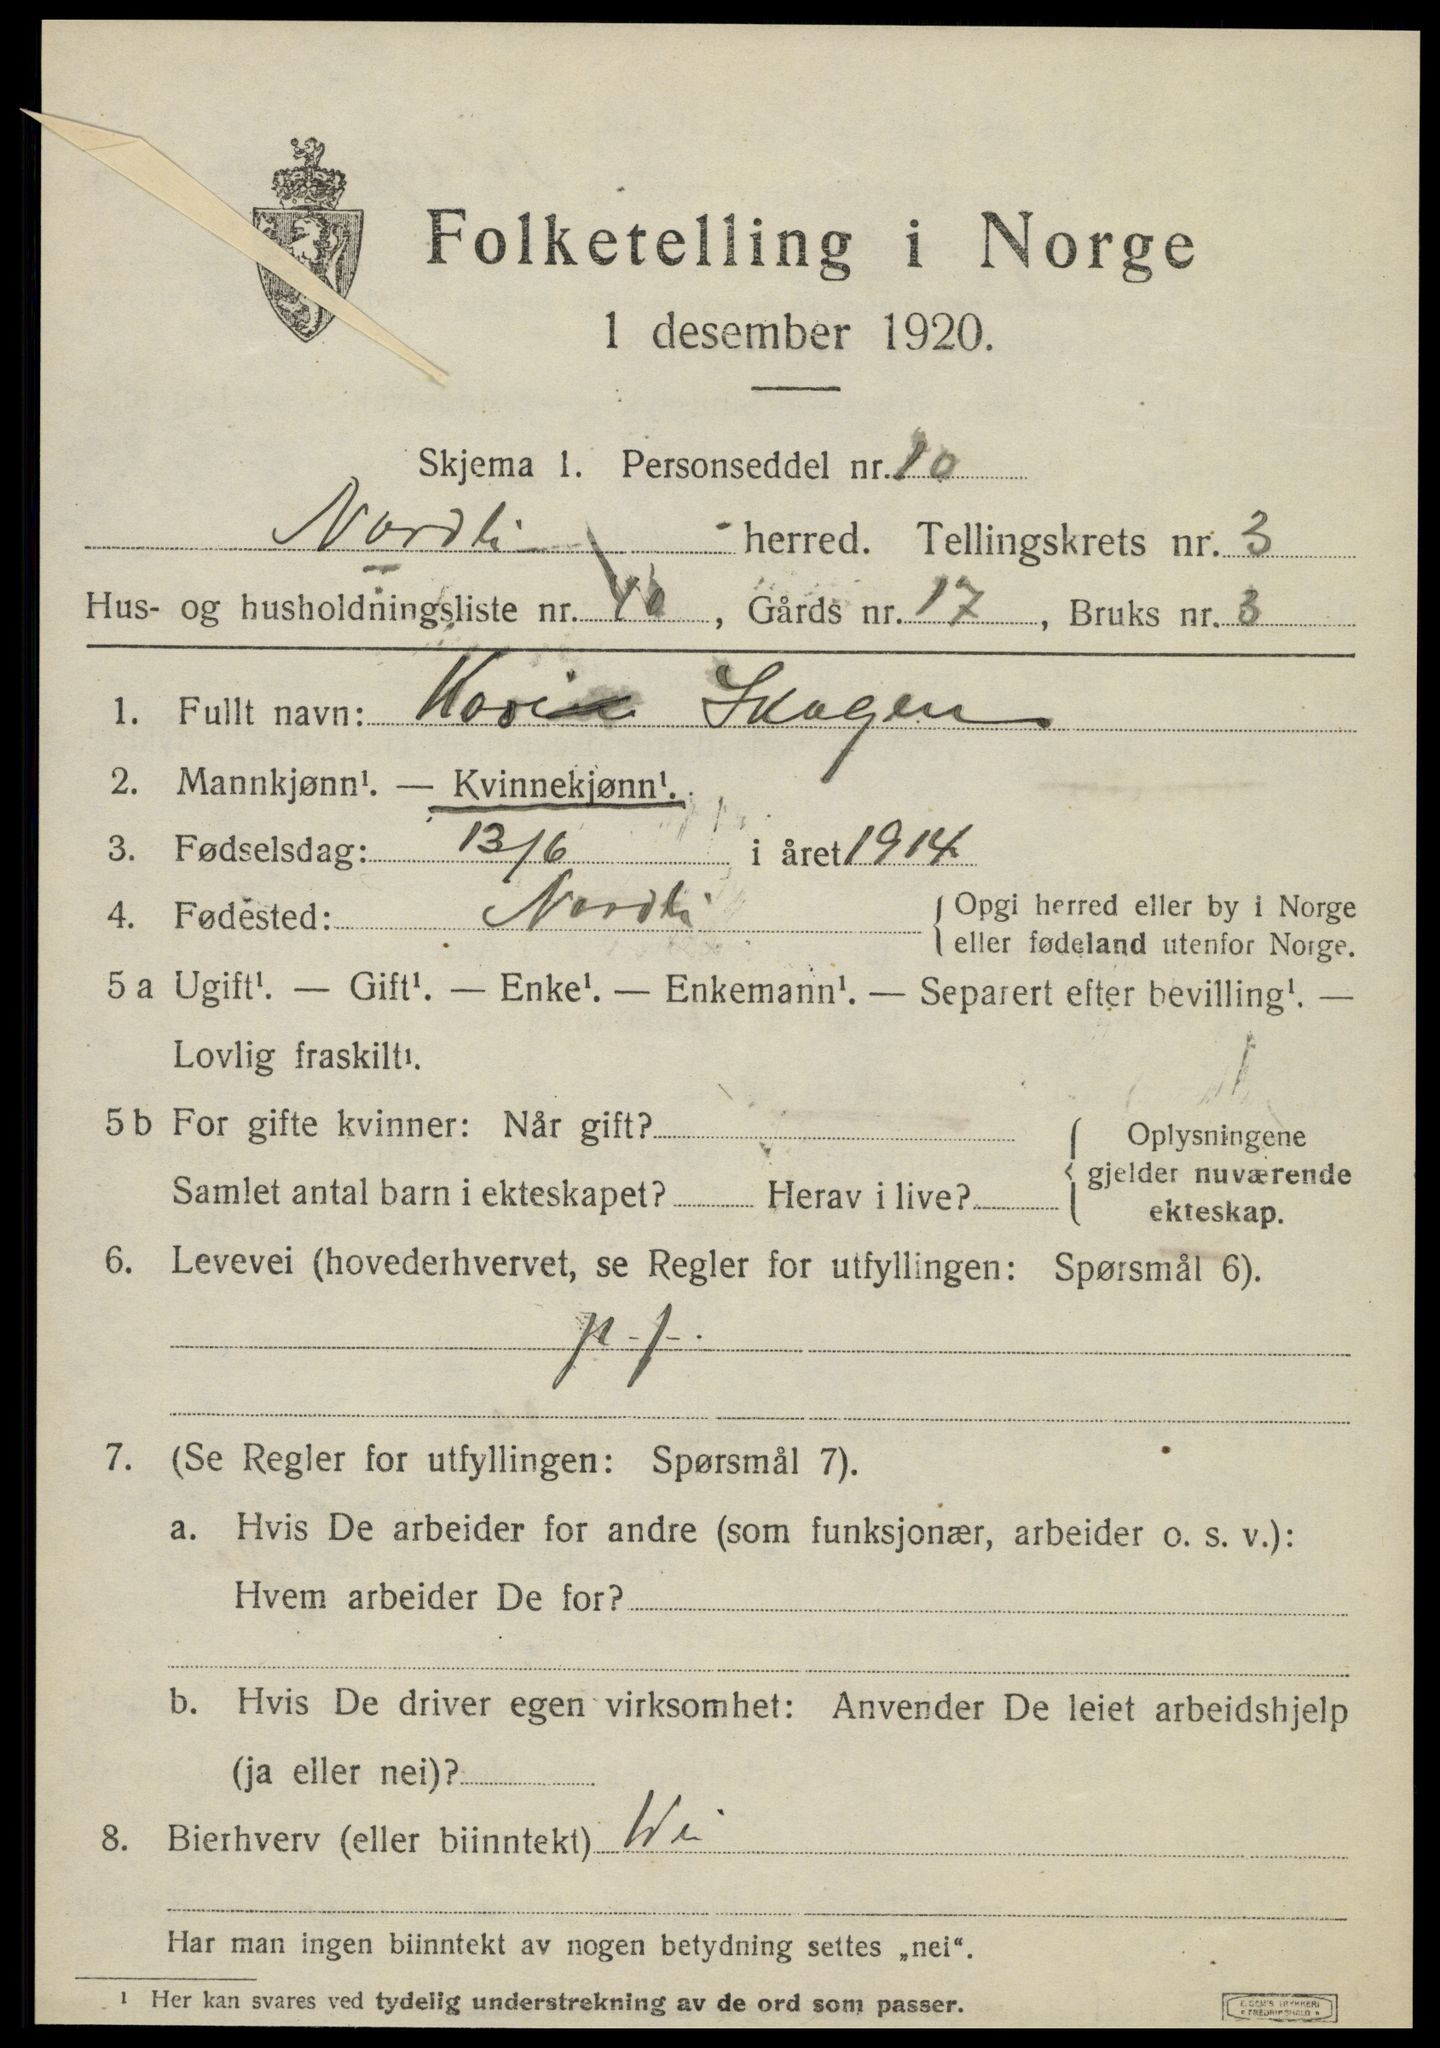 Folketelling i Norge
1 desember 1920.
Skjema 1. Personseddel nr. 10
Nordli herred. Tellingskrets nr. 3
Hus- og husholdningsliste nr. , Gårds nr. 17, Bruks nr. 3
1. Fullt navn: Skogen
2. Mannkjønn¹. — Kvinnekjønn¹.
3. Fødselsdag: 13/6 i året 1914
4. Fødested: Nordli { Opgi herred eller by i Norge
eller fødeland utenfor Norge.
5 a Ugift¹. — Gift¹. — Enke¹. — Enkemann¹. — Separert efter bevilling¹. —
Lovlig fraskilt¹.
5 b For gifte kvinner: Når gift? { Oplysningene
gjelder nuværende
Samlet antal barn i ekteskapet? Herav i live?
ekteskap.
6. Levevei (hovederhvervet, se Regler for utfyllingen: Spørsmål 6).
7. (Se Regler for utfyllingen: Spørsmål 7).
a. Hvis De arbeider for andre (som funksjonær, arbeider o. s. v.):
Hvem arbeider De for?
b. Hvis De driver egen virksomhet: Anvender De leiet arbeidshjelp
(ja eller nei)?
8. Bierhverv (eller biinntekt)
Har man ingen biinntekt av nogen betydning settes „nei“.
¹ Her kan svares ved tydelig understrekning av de ord som passer.